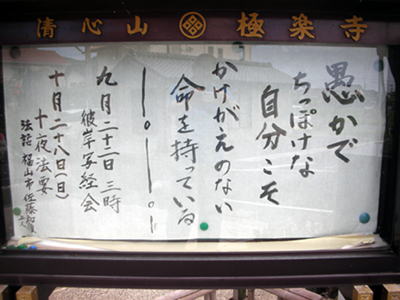 清心山 極楽寺
愚かで
ちっぽけな
自分こそ
かけがえのない
命を持っている
九月二十二日 三時
彼岸写経会
十月二十八日(日)
十夜法要
法話 福山市 佐藤